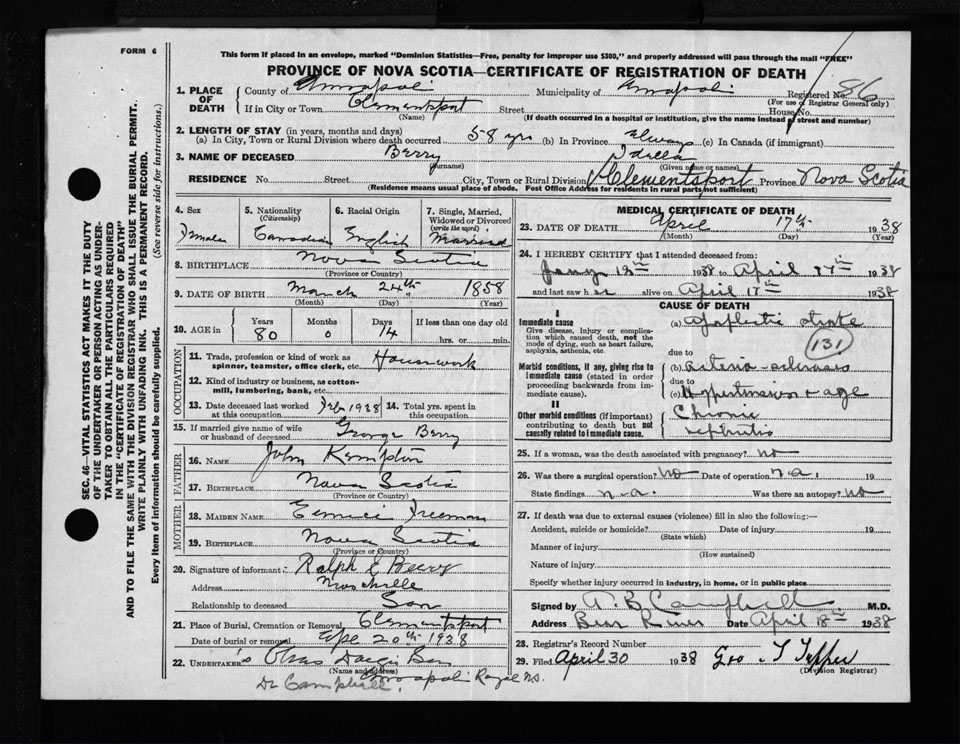 FORM 6
This form if placed in an envelope, marked "Dominion Statistics—Free, penalty for improper use $300," and properly addressed will pass through the mail "FREE"
PROVINCE OF NOVA SCOTIA—CERTIFICATE OF REGISTRATION OF DEATH
1. PLACE OF DEATH County of Annapolis Municipality of Annapolis Registered No. 86
(For use of Registrar General only)
If in City or Town Clementsport Street House No.
(Name) (If death occurred in a hospital or institution, give the name instead of street and number)
2. LENGTH OF STAY (in years, months and days)
(a) In City, Town or Rural Division where death occurred 58 yrs (b) In Province always (c) In Canada (if immigrant)
3. NAME OF DECEASED Berry Idella
(Surname) (Given name or names)
RESIDENCE No. Street City, Town or Rural Division Clementsport Province Nova Scotia
(Residence means usual place of abode. Post Office Address for residents in rural parts not sufficient)
4. Sex 5. Nationality (Citizenship) 6. Racial Origin 7. Single, Married, Widowed or Divorced (write the word)
Female Canadian English Married
8. BIRTHPLACE Nova Scotia
(Province or Country)
9. DATE OF BIRTH March 24th 1858
(Month) (Day) (Year)
10. AGE in Years Months Days If less than one day old
80 0 14 hrs. or min.
OCCUPATION
11. Trade, profession or kind of work as spinner, teamster, office clerk, etc. Housework
12. Kind of industry or business, as cotton-mill, lumbering, bank, etc.
13. Date deceased last worked at this occupation Feb 1938 14. Total yrs. spent in this occupation
15. If married give name of wife or husband of deceased George Berry
FATHER
16. NAME John Kempton
17. BIRTHPLACE Nova Scotia
(Province or Country)
MOTHER
18. MAIDEN NAME Freeman
19. BIRTHPLACE Nova Scotia
(Province or Country)
20. Signature of informant Ralph E Berry
Address
Relationship to deceased Son
21. Place of Burial, Cremation or Removal Clementsport
Date of burial or removal Apl 20th 1938
22. UNDERTAKER'S Chas Son
(Name and Address)
Dr Campbell. Annapolis Royal N.S.
MEDICAL CERTIFICATE OF DEATH
23. DATE OF DEATH April 17th 1938
(Month) (Day) (Year)
24. I HEREBY CERTIFY that I attended deceased from:
Jany 1938 to April 17th 1938
and last saw her alive on April 17th 1938
CAUSE OF DEATH
I
Immediate cause
Give disease, injury or complication which caused death, not the mode of dying, such as heart failure, asphyxia, asthenia, etc.
(a) Apoplectic stroke
(131)
due to
Morbid conditions, if any, giving rise to immediate cause (stated in order proceeding backwards from immediate cause).
(b) Arterio-sclerosis
due to
(c) Hypertension + age
II
Other morbid conditions (if important) contributing to death but not causally related to immediate cause.
Chronic
nephritis
25. If a woman, was the death associated with pregnancy? no
26. Was there a surgical operation? no Date of operation n.a. 19
State findings n.a. Was there an autopsy? no
27. If death was due to external causes (violence) fill in also the following:—
Accident, suicide or homicide? Date of injury 19
(State which)
Manner of injury
(How sustained)
Nature of injury
Specify whether injury occurred in industry, in home, or in public place
Signed by A. B. Campbell M.D.
Address Bear River Date April 18th 1938
28. Registrar's Record Number
29. Filed April 30 1938 Geo S Tupper
(Division Registrar)
SEC. 46—VITAL STATISTICS ACT MAKES IT THE DUTY
OF THE UNDERTAKER OR PERSON ACTING AS UNDER-
TAKER TO OBTAIN ALL THE PARTICULARS REQUIRED
IN THE "CERTIFICATE OF REGISTRATION OF DEATH"
AND TO FILE THE SAME WITH THE DIVISION REGISTRAR WHO SHALL ISSUE THE BURIAL PERMIT.
WRITE PLAINLY WITH UNFADING INK. THIS IS A PERMANENT RECORD.
Every item of information should be carefully supplied. (See reverse side for instructions.)